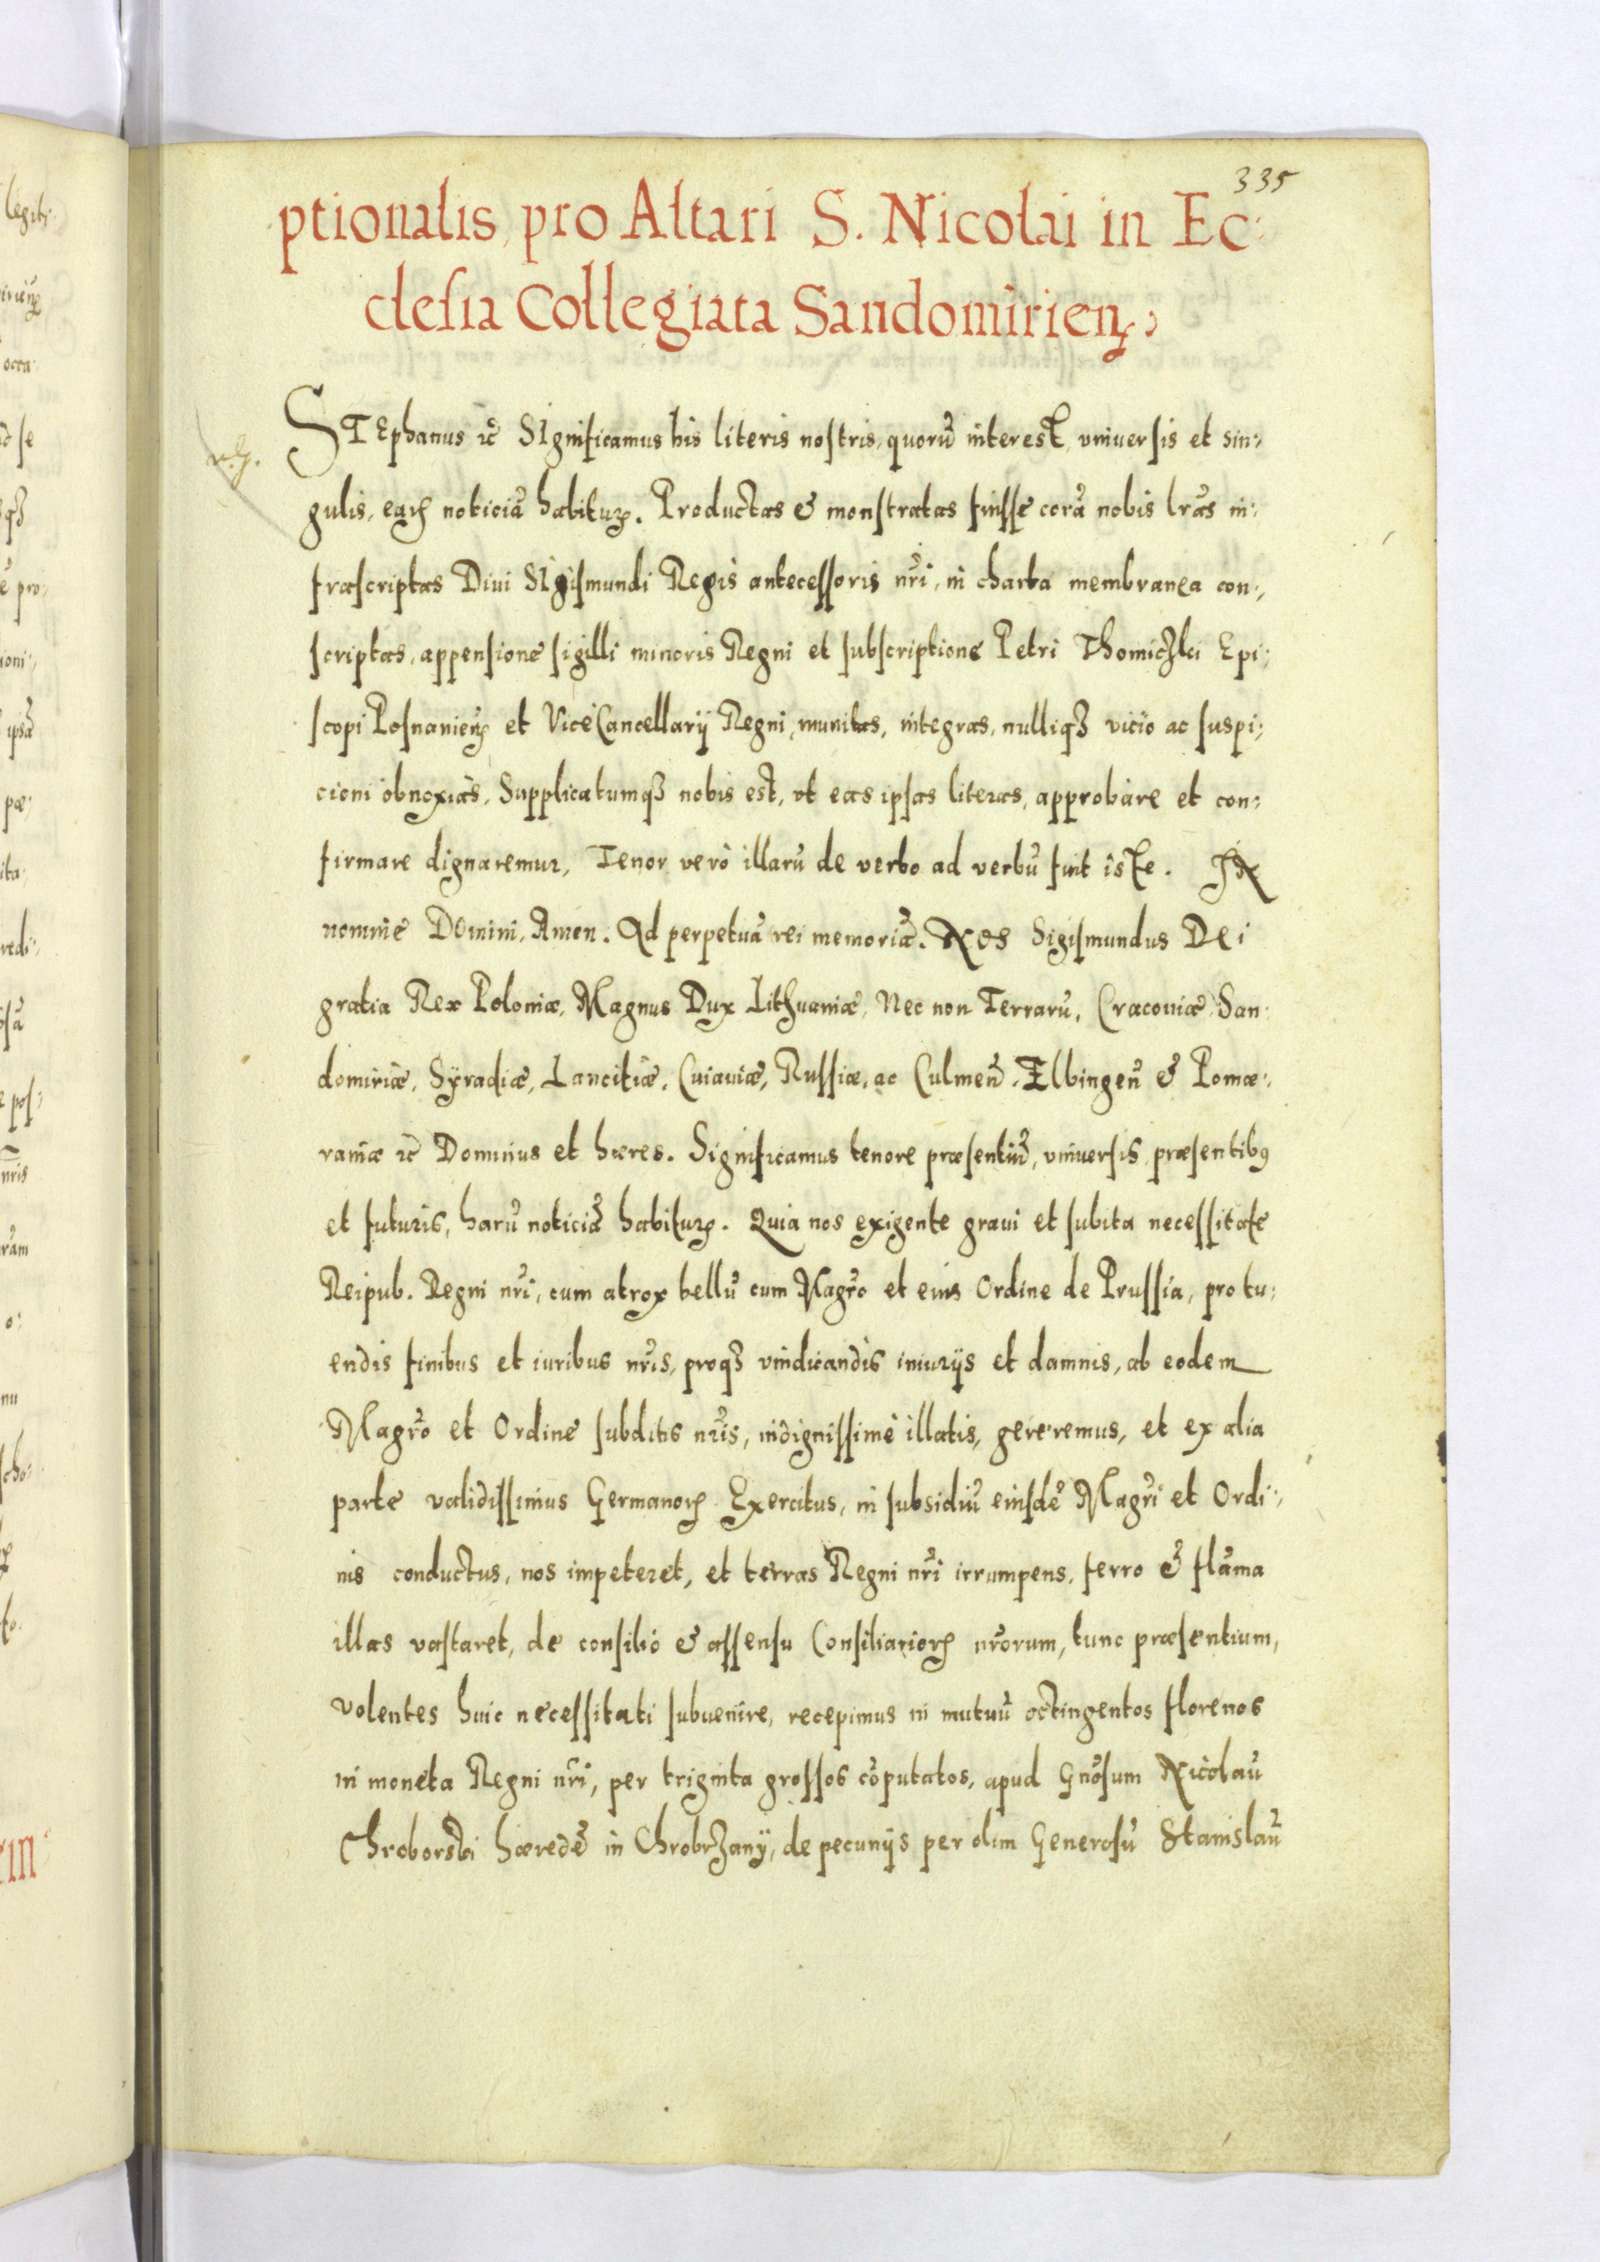 335
ptionalis, pro Altari S. Nicolai in Ec:
clesia Collegiata Sandomirien̄.
STEphanus ꝛc̄ SIgnificamus his literis nostris, quorū interest, vniuersis et sin:
gulis, earꝫ noticiā habituꝝ. Productas & monstratas fuisse corā nobis lr̄as in:
frascriptas Diui SIgismundi Regis antecessoris nr̄i, in charta membranea con:
scriptas, appensione sigilli minoris Regni et subscriptione Petri Thomiczki Epi:
scopi Posnanien̄ et ViceCancellarij Regni, munitas, integras, nulliqꝫ vicio ac suspi:
cioni obnoxias, Supplicatumqꝫ nobis est, vt eas ipsas literas, approbare et con:
firmare dignaremur, Tenor verò illarū de verbo ad verbū fuit iste. IN
nomine DOmini, Amen. Ad perpetuā rei memoriā. NOS Sigismundus DEi
gratia Rex Poloniæ, Magnus Dux Lithuaniæ, Nec non Terrarū, Cracouiæ, San:
domiriæ, Syradiæ, Lancitiæ, Cuiauiæ, Russiæ, ac Culmen̄. Elbingen̄ & Pomæ:
raniæ ꝛc̄ Dominus et hæres. Significamus tenore præsentiū, vniuersis, præsentibꝰ
et futuris, harū noticiā habituꝝ. Quia nos exigente graui et subita necessitate
Reipub. Regni nr̄i, cum atrox bellū cum Magr̄o et eius Ordine de Prussia, pro tu:
endis finibus et iuribus nr̄is, proqꝫ vindicandis iniurijs et damnis, ab eodem
Magr̄o et Ordine subditis nr̄is, indignissimè illatis, gereremus, et ex alia
parte validissimus Germanorꝫ Exercitus, in subsidiū eiusdē Magr̄i et Ordi:
nis conductus, nos impeteret, et terras Regni nr̄i irrumpens, ferro & flāma
illas vastaret, de consilio & assensu Consiliariorꝫ nr̄orum, tunc præsentium,
volentes huic necessitati subuenire, recepimus in mutuū octingentos florenos
in moneta Regni nr̄i, per triginta grossos cōputatos, apud Gnōsum Nicolaū
Chroborski hæredē in Chrobrzany, de pecunijs per olim Generosū Stanislaū